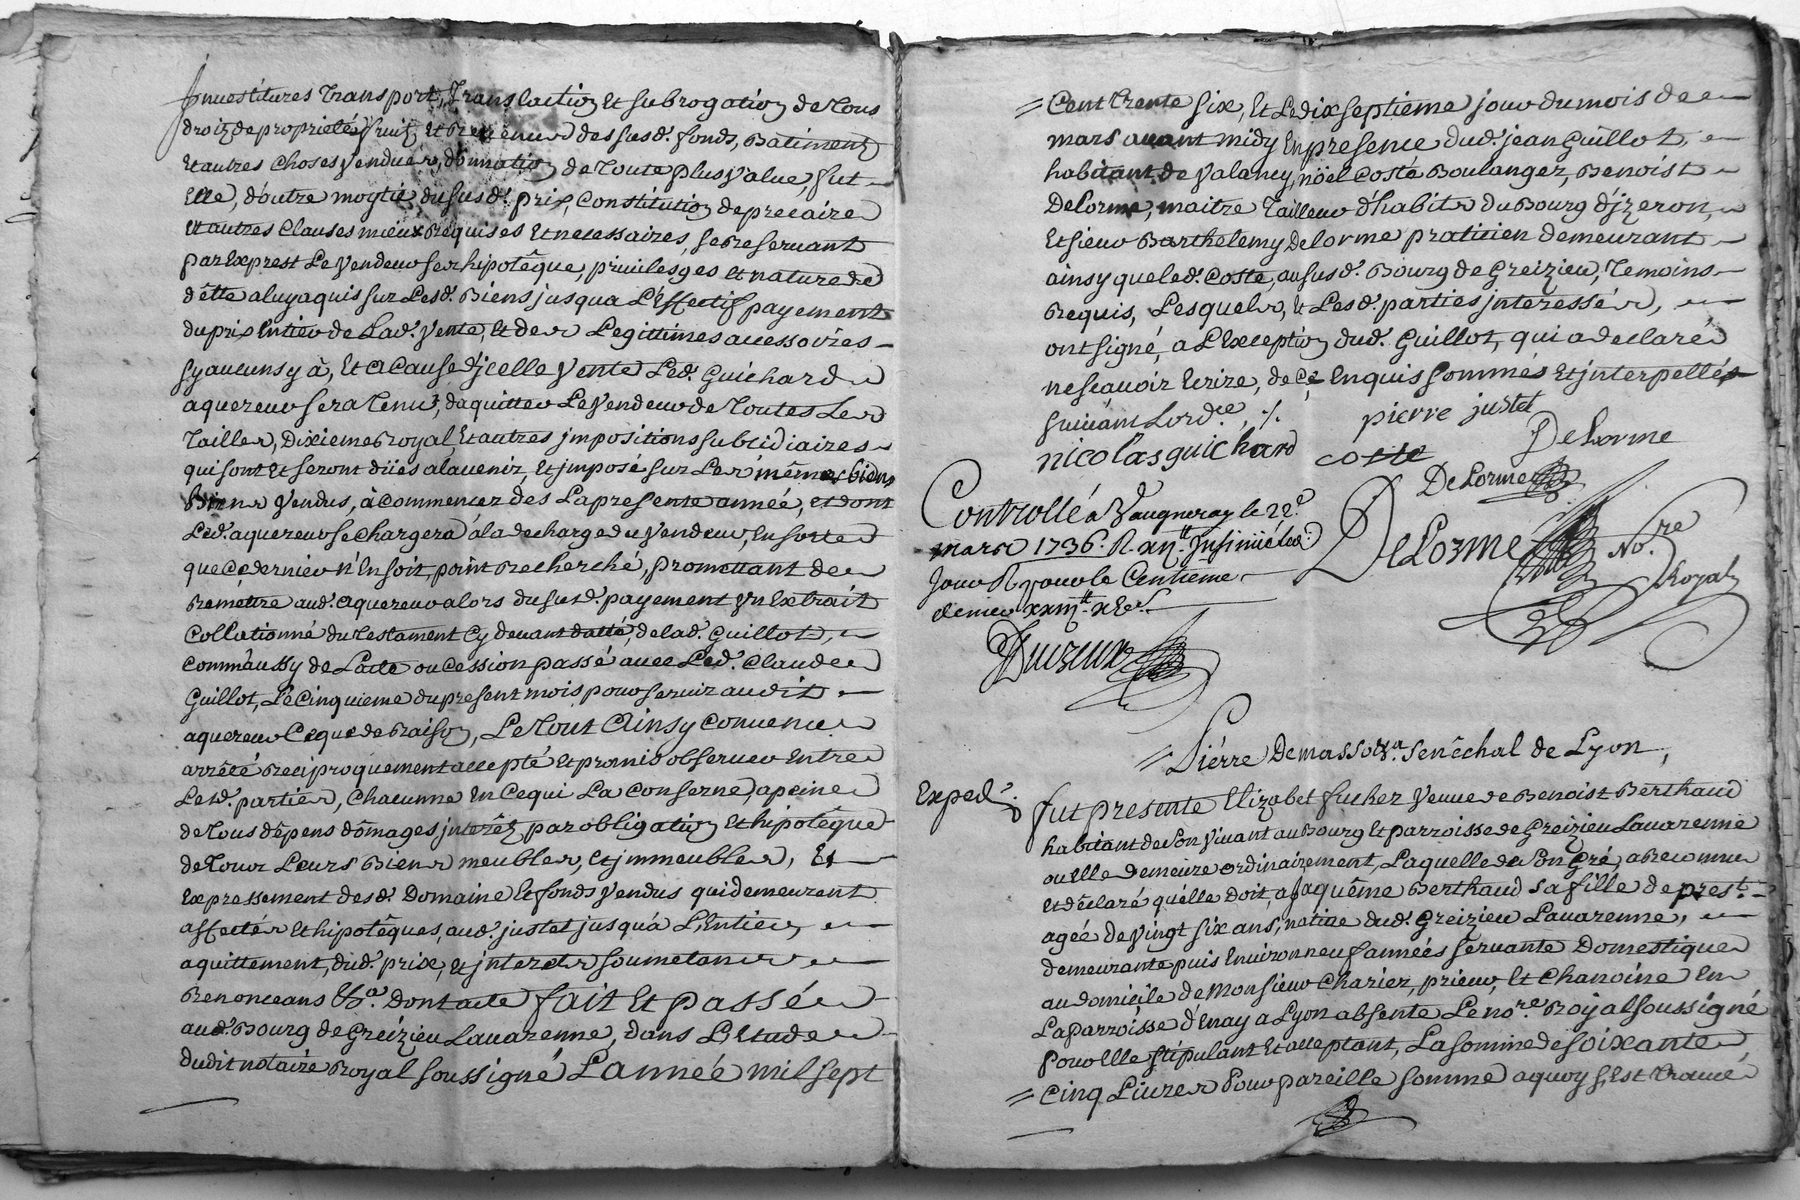 Jnuestitures Transport, Translation Et subrogation de Tous
droiz de proprietés fruiz, Et Reuenus des susd. fonds, Batiments
Et autres choses vendues, donnation de Toute plus value, fut
Elle, d'outre moytie du susd. prix, Constitution de precaire
Et autres Clauses mieux Requises Et necessaires, se Reseruant
par Exprest Le vendeur ses hipotêque, priuileges et nature de
dêtte a luy aquis sur Lesd. Biens jusqua L'Effectif payement
du prix Entier de Lad. vente, Et des Legitimes accessoires
sy aucuns y à, Et a Cause d'jcelle vente Led. Guichard
aquereur sera Tenu, d'aquitter Le vendeur de Toutes Les
Tailles, Dixieme Royal, Et autres jmpositions subcidiaires
qui sont Et seront düés a lauenir, Et jmposé sur Les mêmes biens
Biens vendus, à commencer des La presente année, et dont
Led. aquereur se Chargera à la decharge du vendeur, En sorte
que Ce dernier n'En soit point Recherché, promettant de
Remettre aud. aquereur alors du susd. payement vn Extrait
Collationné du Testament Cy deuant datté, de lad. Guillot,
Comm'aussy de Lacte ou Cession passé auec Led. Claude
Guillot, Le Cinquieme du present mois pour seruir audit
aquereur Ce que de Raison, Le Tout Ainsy Conuenu
arrêté Reciproquement accepté Et promis obseruer Entre
Lesd. parties, Chacunne En Ce qui La Conserne, a peine
de Tous dêpens dômages jnterêtz par obligation Et hipotêque
de Tous Leurs Biens meubles, Et jmmeubles, Et
Expressement desd. Domaine Et fonds vendus qui demeurent
affectés Et hipotêques, aud. justet jusqu'à L'Entier,
aquittement, dud. prix, Et jnterets soumetans
Renonceans &a. Dont acte fait Et passé
aud. Bourg de Greizieu Lauarenne, dans L'Etude
dudit notaire Royal soussigné L'année mil sept
Cent Trente six, Et Le dix septieme jour du mois de
mars auant midy En presence dud. jean Guillot,
habitant de valancy, nöel Coste Boulanger, Benoist
Delorme, maitre Tailleur d'habits du Bourg d'jzeron,
Et sieur Barthelemy Delorme praticien demeurant
ainsy que led. Coste, au susd. Bourg de Greizieu, Temoins
Requis, Lesquels, Et Lesd. parties jnteressés,
ont signé, a L'Exception dud. Guillot, qui a declaré
ne sçauoir Ecrire, de ce Enquis sommés Et jnterpellés
suiuam Lordce, ./.
pierre justet
nicolas guichard
coste
Delorme
Delorme
Controllé a Vaugneray le 22e
mars 1736. R. xij.tt Insinüé led.
Jour R pour le Centieme
denier
Delorme No.re
Royal
Piérre Demasso &a. senêchal de Lyon,
Exped.
fut presente Elizabet fucher veuue de Benoist Berthaud
habitant de son viuant au Bourg Et parroisse de Greizieu Lauarenne
ou Elle demeure ordinairement, Laquelle de son gré, a Reconnu
Et déclaré qu'elle doit, a Jaquême Berthaud sa fille de prest.
agée de vingt six ans, natiue dud. Greizieu Lauarenne,
demeurante puis Enuiron neuf années seruante Domestique
au domicile de Monsieur Charier, prieur, Et Chanoine En
La parroisse d'Enay a Lyon absente Le no.re Royal soussigné
pour Elle stipulant Et acceptant, La somme de soixante
Cinq Liures Pour pareille somme a quoy s'Est Trouué